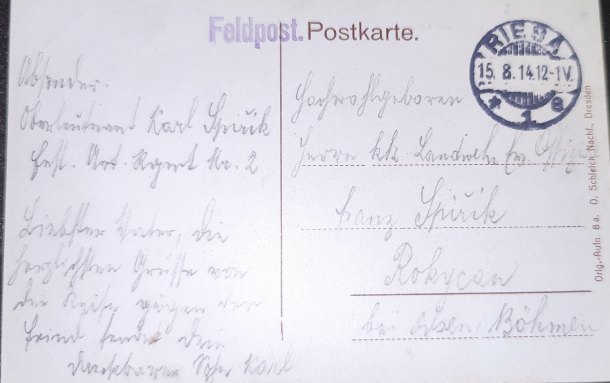 Feldpost. Postkarte.
RIESA
15. 8. 14.12-1V.
* 1. e
Absender:
Oberleutnant Karl Spiřik
Fest. Art. Regmt No. 2
Liebster Vater, die
herzlichsten Grüsse von
der Reise gegen den
Feind sendet dein
dankbarer Sohn Karl
Hochwohlgeboren
Herrn kk. Landweh
Franz Spiřik
Rokycan
bei Pilsen, Böhmen
Orig.-Aufn. 8a. O. Schleich Nachf., Dresden